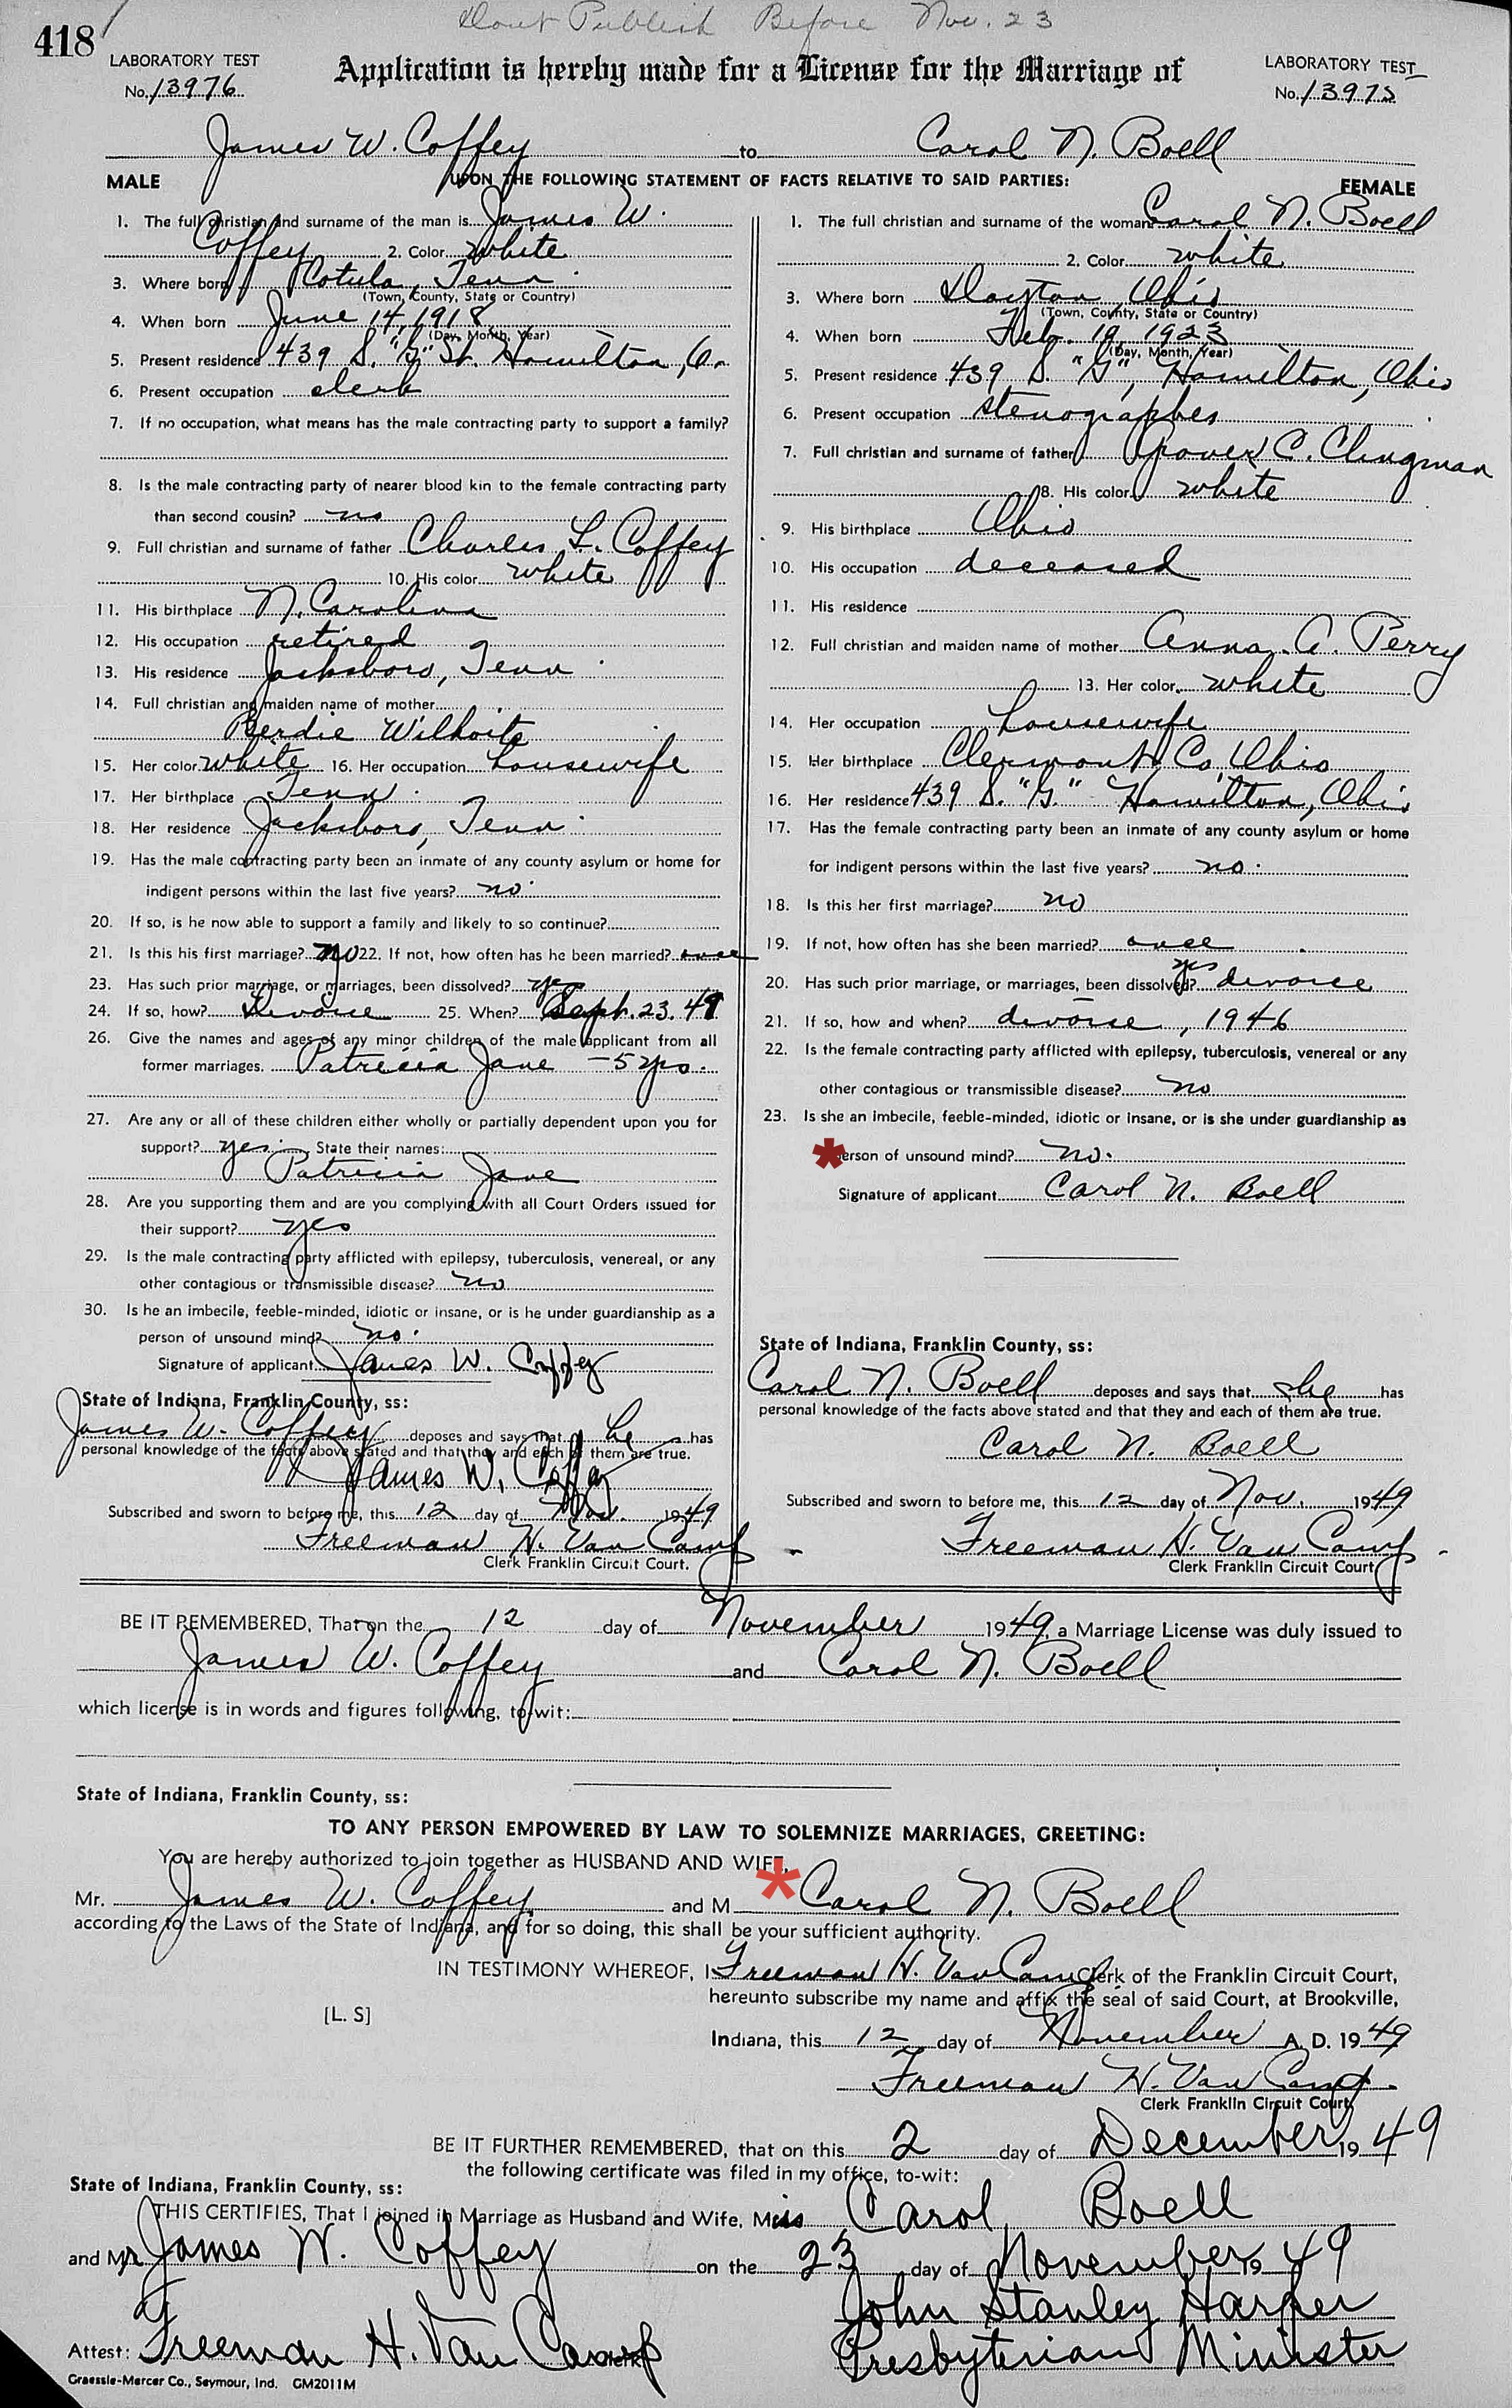 Dont Publish Before Nov. 23
418
LABORATORY TEST
No. 13976
Application is hereby made for a License for the Marriage of
LABORATORY TEST
No. 13975
James W. Coffey to Carol N. Boell
UPON THE FOLLOWING STATEMENT OF FACTS RELATIVE TO SAID PARTIES:
MALE
1. The full christian and surname of the man is James W.
Coffey 2. Color White
3. Where born Cotula, Tenn.
(Town, County, State or Country)
4. When born June 14, 1918
(Day, Month, Year)
5. Present residence 439 S. "G" St. Hamilton, O.
6. Present occupation clerk
7. If no occupation, what means has the male contracting party to support a family?
8. Is the male contracting party of nearer blood kin to the female contracting party
than second cousin? no
9. Full christian and surname of father Charles L. Coffey
10. His color white
11. His birthplace N. Carolina
12. His occupation retired
13. His residence Jacksboro, Tenn.
14. Full christian and maiden name of mother
Berdie Wilhoite
15. Her color white 16. Her occupation housewife
17. Her birthplace Tenn.
18. Her residence Jacksboro, Tenn.
19. Has the male contracting party been an inmate of any county asylum or home for
indigent persons within the last five years? no.
20. If so, is he now able to support a family and likely to so continue?
21. Is this his first marriage? no 22. If not, how often has he been married? once
23. Has such prior marriage, or marriages, been dissolved? yes
24. If so, how? Divorce 25. When? Sept. 23. 49
26. Give the names and ages of any minor children of the male applicant from all
former marriages. Patricia Jane - 5 yrs.
27. Are any or all of these children either wholly or partially dependent upon you for
support? yes. State their names:
Patricia Jane
28. Are you supporting them and are you complying with all Court Orders issued for
their support? yes
29. Is the male contracting party afflicted with epilepsy, tuberculosis, venereal, or any
other contagious or transmissible disease? no
30. Is he an imbecile, feeble-minded, idiotic or insane, or is he under guardianship as a
person of unsound mind? no.
Signature of applicant James W. Coffey
State of Indiana, Franklin County, ss:
James W. Coffey deposes and says that he has
personal knowledge of the facts above stated and that they and each of them are true.
James W. Coffey
Subscribed and sworn to before me, this 12 day of Nov. 1949
Freeman H. Van Camp
Clerk Franklin Circuit Court.
FEMALE
1. The full christian and surname of the woman Carol N. Boell
2. Color white
3. Where born Dayton, Ohio
(Town, County, State or Country)
4. When born Feb. 19 1923
(Day, Month, Year)
5. Present residence 439 S. "G", Hamilton, Ohio
6. Present occupation stenographer
7. Full christian and surname of father Grover C. Clingman
8. His color white
9. His birthplace Ohio
10. His occupation deceased
11. His residence
12. Full christian and maiden name of mother Anna A. Perry
13. Her color white
14. Her occupation housewife
15. Her birthplace Clermont Co. Ohio
16. Her residence 439 S. "G." Hamilton, Ohio
17. Has the female contracting party been an inmate of any county asylum or home
for indigent persons within the last five years? no.
18. Is this her first marriage? no
19. If not, how often has she been married? once
20. Has such prior marriage, or marriages, been dissolved? yes divorce
21. If so, how and when? divorce, 1946
22. Is the female contracting party afflicted with epilepsy, tuberculosis, venereal or any
other contagious or transmissible disease? no
23. Is she an imbecile, feeble-minded, idiotic or insane, or is she under guardianship as
*erson of unsound mind? no.
Signature of applicant Carol N. Boell
State of Indiana, Franklin County, ss:
Carol N. Boell deposes and says that she has
personal knowledge of the facts above stated and that they and each of them are true.
Carol N. Boell
Subscribed and sworn to before me, this 12 day of Nov. 1949
Freeman H. Van Camp
Clerk Franklin Circuit Court
BE IT REMEMBERED, That on the 12 day of November 1949, a Marriage License was duly issued to
James W. Coffey and Carol N. Boell
which license is in words and figures following, to-wit:
State of Indiana, Franklin County, ss:
TO ANY PERSON EMPOWERED BY LAW TO SOLEMNIZE MARRIAGES, GREETING:
You are hereby authorized to join together as HUSBAND AND WIFE,
Mr. James W. Coffey and M * Carol N. Boell
according to the Laws of the State of Indiana, and for so doing, this shall be your sufficient authority.
IN TESTIMONY WHEREOF, I Freeman H. Van Camp Clerk of the Franklin Circuit Court,
hereunto subscribe my name and affix the seal of said Court, at Brookville,
[L. S]
Indiana, this 12 day of November A. D. 1949
Freeman H. Van Camp
Clerk Franklin Circuit Court
BE IT FURTHER REMEMBERED, that on this 2 day of December 1949
the following certificate was filed in my office, to-wit:
State of Indiana, Franklin County, ss:
THIS CERTIFIES, That I joined in Marriage as Husband and Wife, Miss Carol Boell
and Mr James W. Coffey on the 23 day of November 1949
John Stanley Harper
Presbyterian Minister
Attest: Freeman H. Van Camp
Graessle-Mercer Co., Seymour, Ind. GM2011M